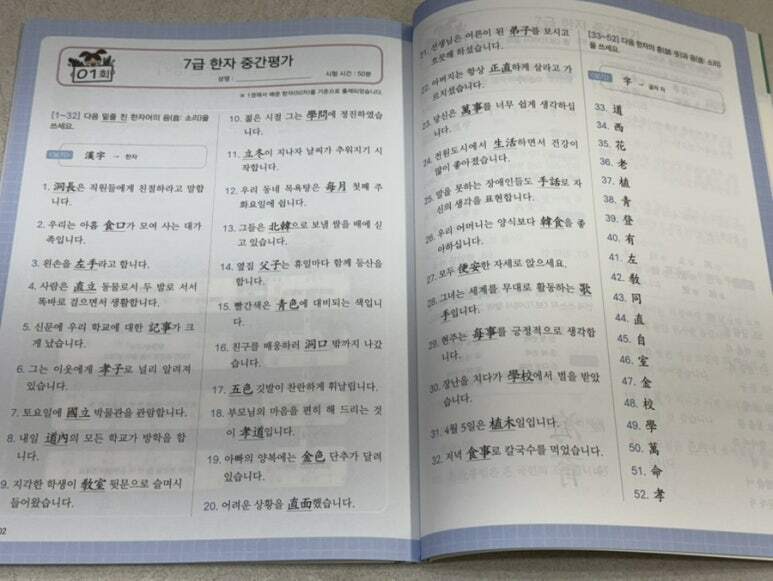 01회
7급 한자 중간평가
성명 :
시험 시간 : 50분
※ 1권에서 배운 한자(50자)를 기준으로 출제되었습니다.
[1~32] 다음 밑줄 친 한자어의 음(音: 소리)을
쓰세요.
<보기> 漢字 → 한자
1. 洞長은 직원들에게 친절하라고 말합
니다.
2. 우리는 아홉 食口가 모여 사는 대가
족입니다.
3. 왼손을 左手라고 합니다.
4. 사람은 直立 동물로서 두 발로 서서
똑바로 걸으면서 생활합니다.
5. 신문에 우리 학교에 대한 記事가 크
게 났습니다.
6. 그는 이웃에게 孝子로 널리 알려져
있습니다.
7. 토요일에 國立 박물관을 관람합니다.
8. 내일 道內의 모든 학교가 방학을 합
니다.
9. 지각한 학생이 敎室 뒷문으로 슬며시
들어왔습니다.
10. 젊은 시절 그는 學問에 정진하였습
니다.
11. 立冬이 지나자 날씨가 추워지기 시
작합니다.
12. 우리 동네 목욕탕은 每月 첫째 주
화요일에 쉽니다.
13. 그들은 北韓으로 보낼 쌀을 배에 싣
고 있습니다.
14. 옆집 父子는 휴일마다 함께 등산을
합니다.
15. 빨간색은 青色에 대비되는 색입니
다.
16. 친구를 배웅하러 洞口 밖까지 나갔
습니다.
17. 五色 깃발이 찬란하게 휘날립니다.
18. 부모님의 마음을 편히 해 드리는 것
이 孝道입니다.
19. 아빠의 양복에는 金色 단추가 달려
있습니다.
20. 어려운 상황을 直面했습니다.
02
21. 선생님은 어른이 된 弟子를 보시고
흐뭇해 하셨습니다.
22. 아버지는 항상 正直하게 살라고 가
르치셨습니다.
23. 당신은 萬事를 너무 쉽게 생각하십
니다.
24. 전원도시에서 生活하면서 건강이
많이 좋아졌습니다.
25. 말을 못하는 장애인들도 手話로 자
신의 생각을 표현합니다.
26. 우리 어머니는 양식보다 韓食을 좋
아하십니다.
27. 모두 便安한 자세로 앉으세요.
28. 그녀는 세계를 무대로 활동하는 歌
手입니다.
29. 현주는 每事를 긍정적으로 생각합
니다.
30. 장난을 치다가 學校에서 벌을 받았
습니다.
31. 4월 5일은 植木일입니다.
32. 저녁 食事로 칼국수를 먹었습니다.
[33~52] 다음 한자의 훈(訓:뜻)과 음(音:소리)
을 쓰세요.
<보기> 字 → 글자 자
33. 道
34. 西
35. 花
36. 老
37. 植
38. 青
39. 登
40. 有
41. 左
42. 敎
43. 同
44. 直
45. 自
46. 室
47. 金
48. 校
49. 學
50. 萬
51. 命
52. 孝